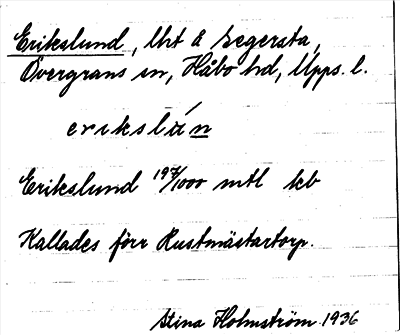 Erikslund, lht å Segersta,
Övergrans sn, Håbo hd, Upps. l.
erikslún
Erikslund 197/1000 mtl kb
Kallades förr Rustmästartorp.
Stina Holmström 1936